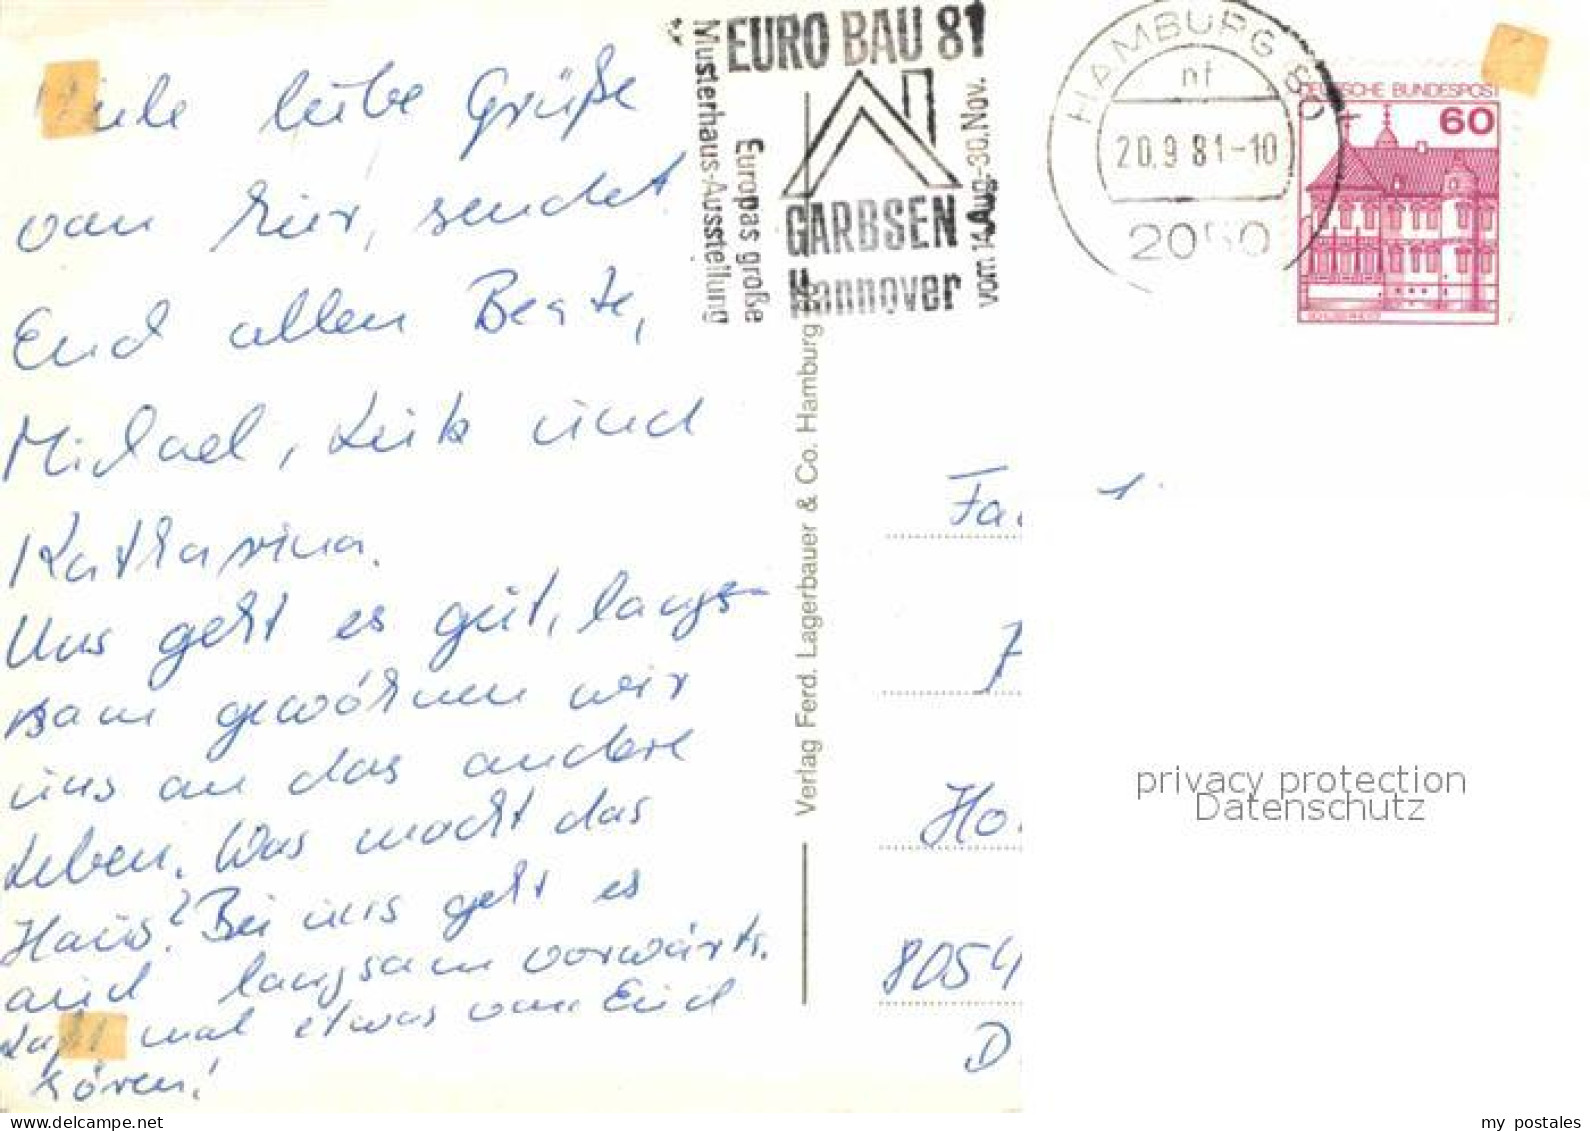 Viele liebe Grüße
von hier, sendet
Euch allen Beate,
Michael, Luis und
Katharina.
Uns geht es gut, lang-
sam gewöhnen wir
uns an das andere
Leben. Was macht das
Haus? Bei uns geht es
auch langsam vorwärts.
Laßt mal etwas von Euch
hören!
EURO BAU 81
Musterhaus-Ausstellung
Europas große
GARBSEN
Hannover
vom 14.Aug.-30.Nov.
Verlag Ferd. Lagerbauer & Co. Hamburg
HAMBURG 80
nf
20.9.81-10
2050
DEUTSCHE BUNDESPOST
60
Fa
Ho
8054
D
privacy protection
Datenschutz
my postales